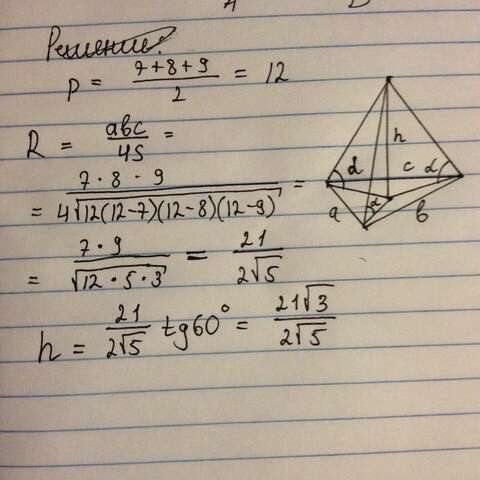 Решение:
p = (7+8+9)/2 = 12
R = abc/4S =
= (7 · 8 · 9)/(4√(12(12-7)(12-8)(12-9))) =
= (7 · 9)/√(12 · 5 · 3) = 21/(2√5)
h = 21/(2√5) tg60° = 21√3/(2√5)
h
α c α
a α b